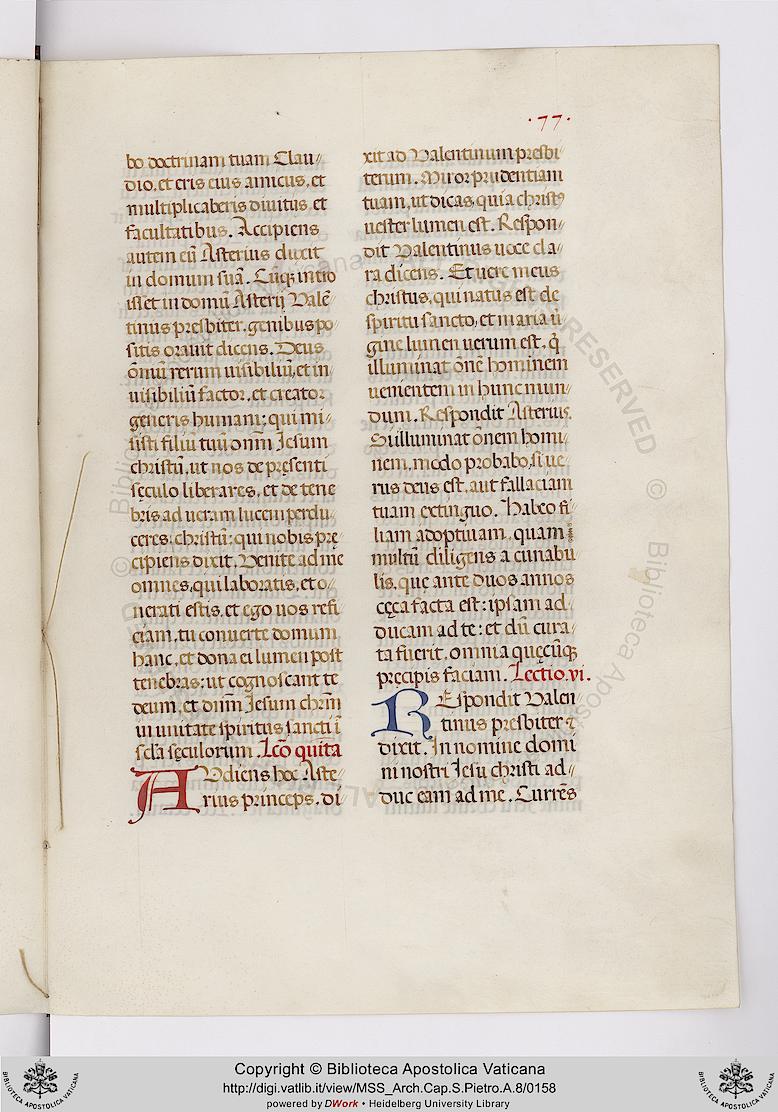 ·77·
bo doctrinam tuam Clau//
dio, et eris eius amicus, et
multiplicaberis diuitijs, et
facultatibus. Accipiens
autem eũ Asterius duxit
in domum suã. Cũq; intro
isset in domũ Asterij Valẽ
tinus presbiter, genibus po//
sitis orauit dicens. Deus
õniũ rerum uisibiliũ, et in
uisibiliũ factor, et creator
generis humani: qui mi//
sisti filiũ tuũ dnm̃ Iesum
christũ, ut nos de pręsenti
sęculo liberares, et de tene
bris ad ueram lucem perdu
ceres, christũ: qui nobis prę
cipiens dixit. Venite ad me
omnes, qui laboratis, et o//
nerati estis, et ego uos refi
ciam, tu conuerte domum
hanc, et dona ei lumen post
tenebras: ut cognoscant te
deum, et dnm̃ Iesum chrm̃
in unitate spiritus sancti ĩ
sc̃la sęculorum. Lc̃o quinta
AVdiens hoc Aste//
rius princeps, di//
xit ad Valentinum presbi//
terum. Miror prudentiam
tuam, ut dicas, quia christꝰ
uester lumen est. Respon//
dit Valentinus uoce cla//
ra dicens. Et uere meus
christus, qui natus est de
spiritu sancto, et maria uĩ
gine lumen uerum est, q̃
illuminat õnẽ hominem
uenientem in hunc mun//
dum. Respondit Asterius.
Si illuminat õnem homi//
nem, modo probabo, si ue//
rus deus est, aut fallaciam
tuam extinguo. Habeo fi//
liam adoptiuam, quam
multũ diligens a cunabu
lis, quę ante duos annos
cęca facta est: ipsam ad//
ducam ad te: et dũ cura//
ta fuerit, omnia quęcũq;
pręcipis faciam. Lectio. vi.
REspondit Valen//
tinus presbiter &
dixit. In nomine domi
ni nostri Iesu christi ad//
duc eam ad me. Currẽs
Copyright © Biblioteca Apostolica Vaticana
http://digi.vatlib.it/view/MSS_Arch.Cap.S.Pietro.A.8/0158
powered by DWork • Heidelberg University Library
BIBLIOTECA APOSTOLICA VATICANA
BIBLIOTECA APOSTOLICA VATICANA